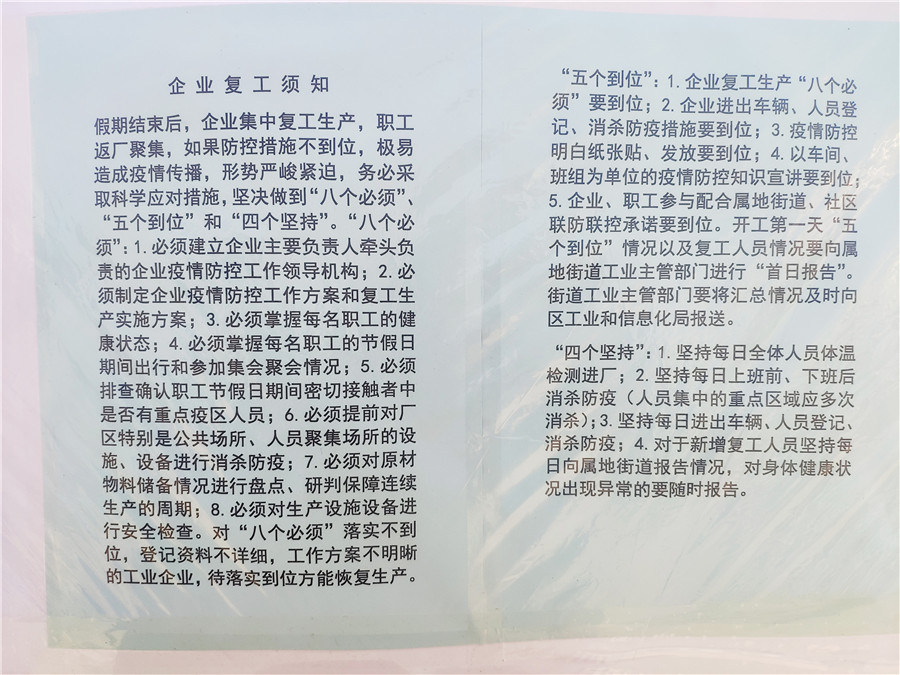 企业复工须知
假期结束后，企业集中复工生产，职工
返厂聚集，如果防控措施不到位，极易
造成疫情传播，形势严峻紧迫，务必采
取科学应对措施，坚决做到“八个必须”、
“五个到位”和“四个坚持”。“八个必
须”：1.必须建立企业主要负责人牵头负
责的企业疫情防控工作领导机构；2.必
须制定企业疫情防控工作方案和复工生
产实施方案；3.必须掌握每名职工的健
康状态；4.必须掌握每名职工的节假日
期间出行和参加集会聚会情况；5.必须
排查确认职工节假日期间密切接触者中
是否有重点疫区人员；6.必须提前对厂
区特别是公共场所、人员聚集场所的设
施、设备进行消杀防疫；7.必须对原材
物料储备情况进行盘点、研判保障连续
生产的周期；8.必须对生产设施设备进
行安全检查。对“八个必须”落实不到
位，登记资料不详细，工作方案不明晰
的工业企业，待落实到位方能恢复生产。
“五个到位”：1.企业复工生产“八个必
须”要到位；2.企业进出车辆、人员登
记、消杀防疫措施要到位；3.疫情防控
明白纸张贴、发放要到位；4.以车间、
班组为单位的疫情防控知识宣讲要到位；
5.企业、职工参与配合属地街道、社区
联防联控承诺要到位。开工第一天“五
个到位”情况以及复工人员情况要向属
地街道工业主管部门进行“首日报告”。
街道工业主管部门要将汇总情况及时向
区工业和信息化局报送。
“四个坚持”：1.坚持每日全体人员体温
检测进厂；2.坚持每日上班前、下班后
消杀防疫（人员集中的重点区域应多次
消杀）；3.坚持每日进出车辆、人员登记、
消杀防疫；4.对于新增复工人员坚持每
日向属地街道报告情况，对身体健康状
况出现异常的要随时报告。